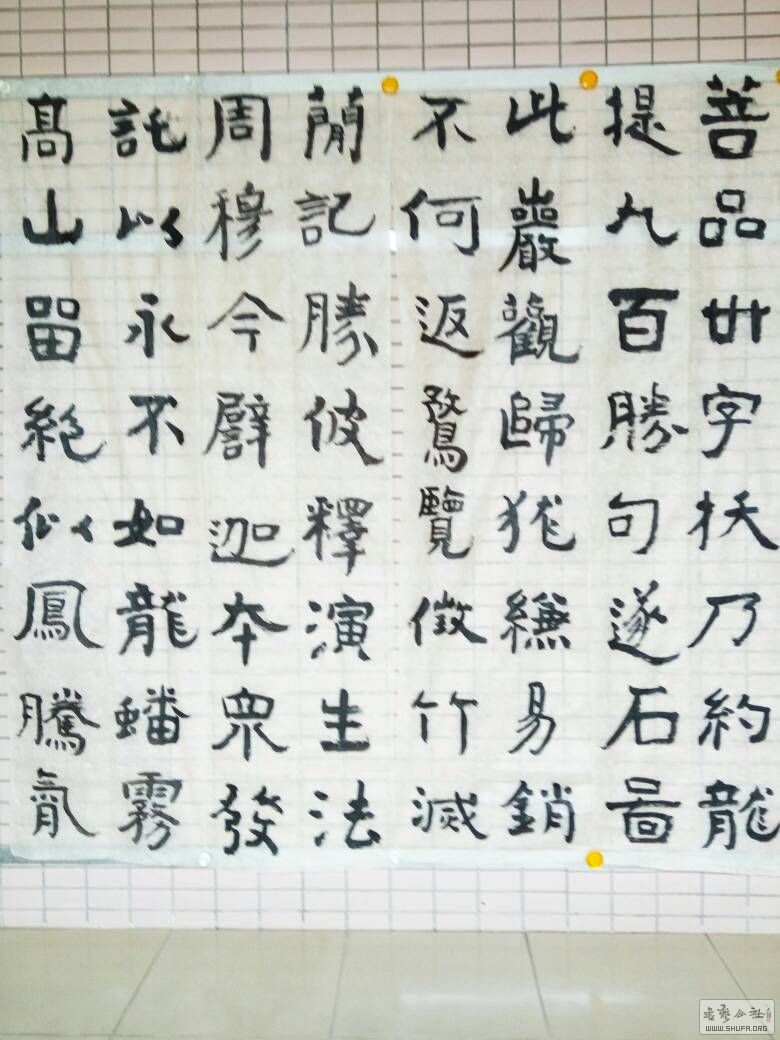 菩品卅字扶乃約龍
提九百勝句遂石啚
此巖觀歸猶縑易銷
不何返鶩覽徵竹滅
蕑記勝彼釋演生法
周穆今劈迦夲衆發
託以永不如龍蟠霧
髙山留絶似鳳騰氣
书艺公社
WWW.SHUFA.ORG